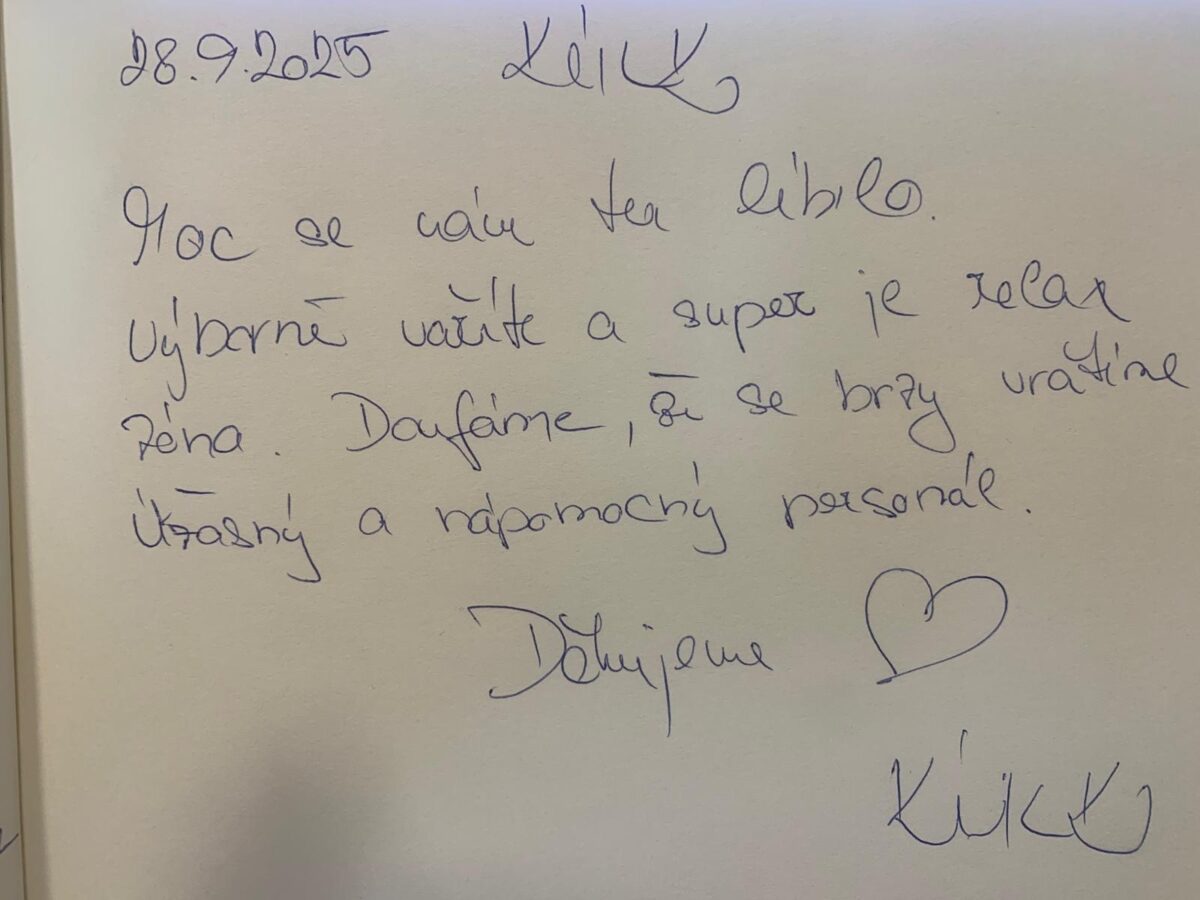 28.9.2025
Moc se nám tu líbilo.
Výborně vaříte a super je relax
zóna. Doufáme, že se brzy vrátíme
Úžasný a nápomocný personál.
Děkujeme ♡